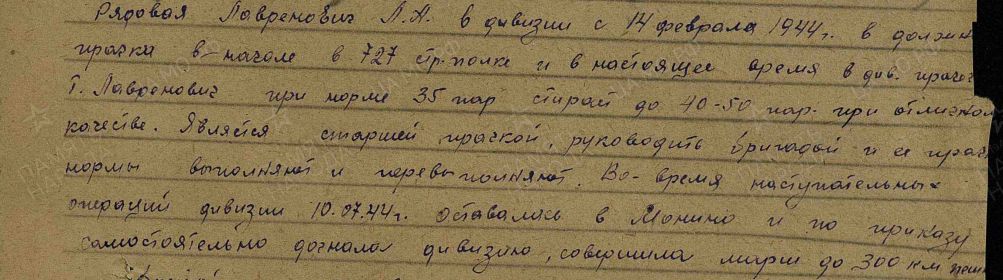 Рядовая Лавренович Л.А. в дивизии с 14 февраля 1944г. в должн
прачка в начале в 727 стр. полке и в настоящее время в див. праче
Т. Лавренович при норме 35 пар стирай до 40-50 пар. при отличном
качестве. Являйся старшей прачкой, руководить бригадой и ее прач
нормы выполняют и перевыполняют. Во-время наступательных
операций дивизии 10.07.44г. оставалась в Монино и по приказу
самостоятельно догнала дивизию, совершила марш до 300 км пеш